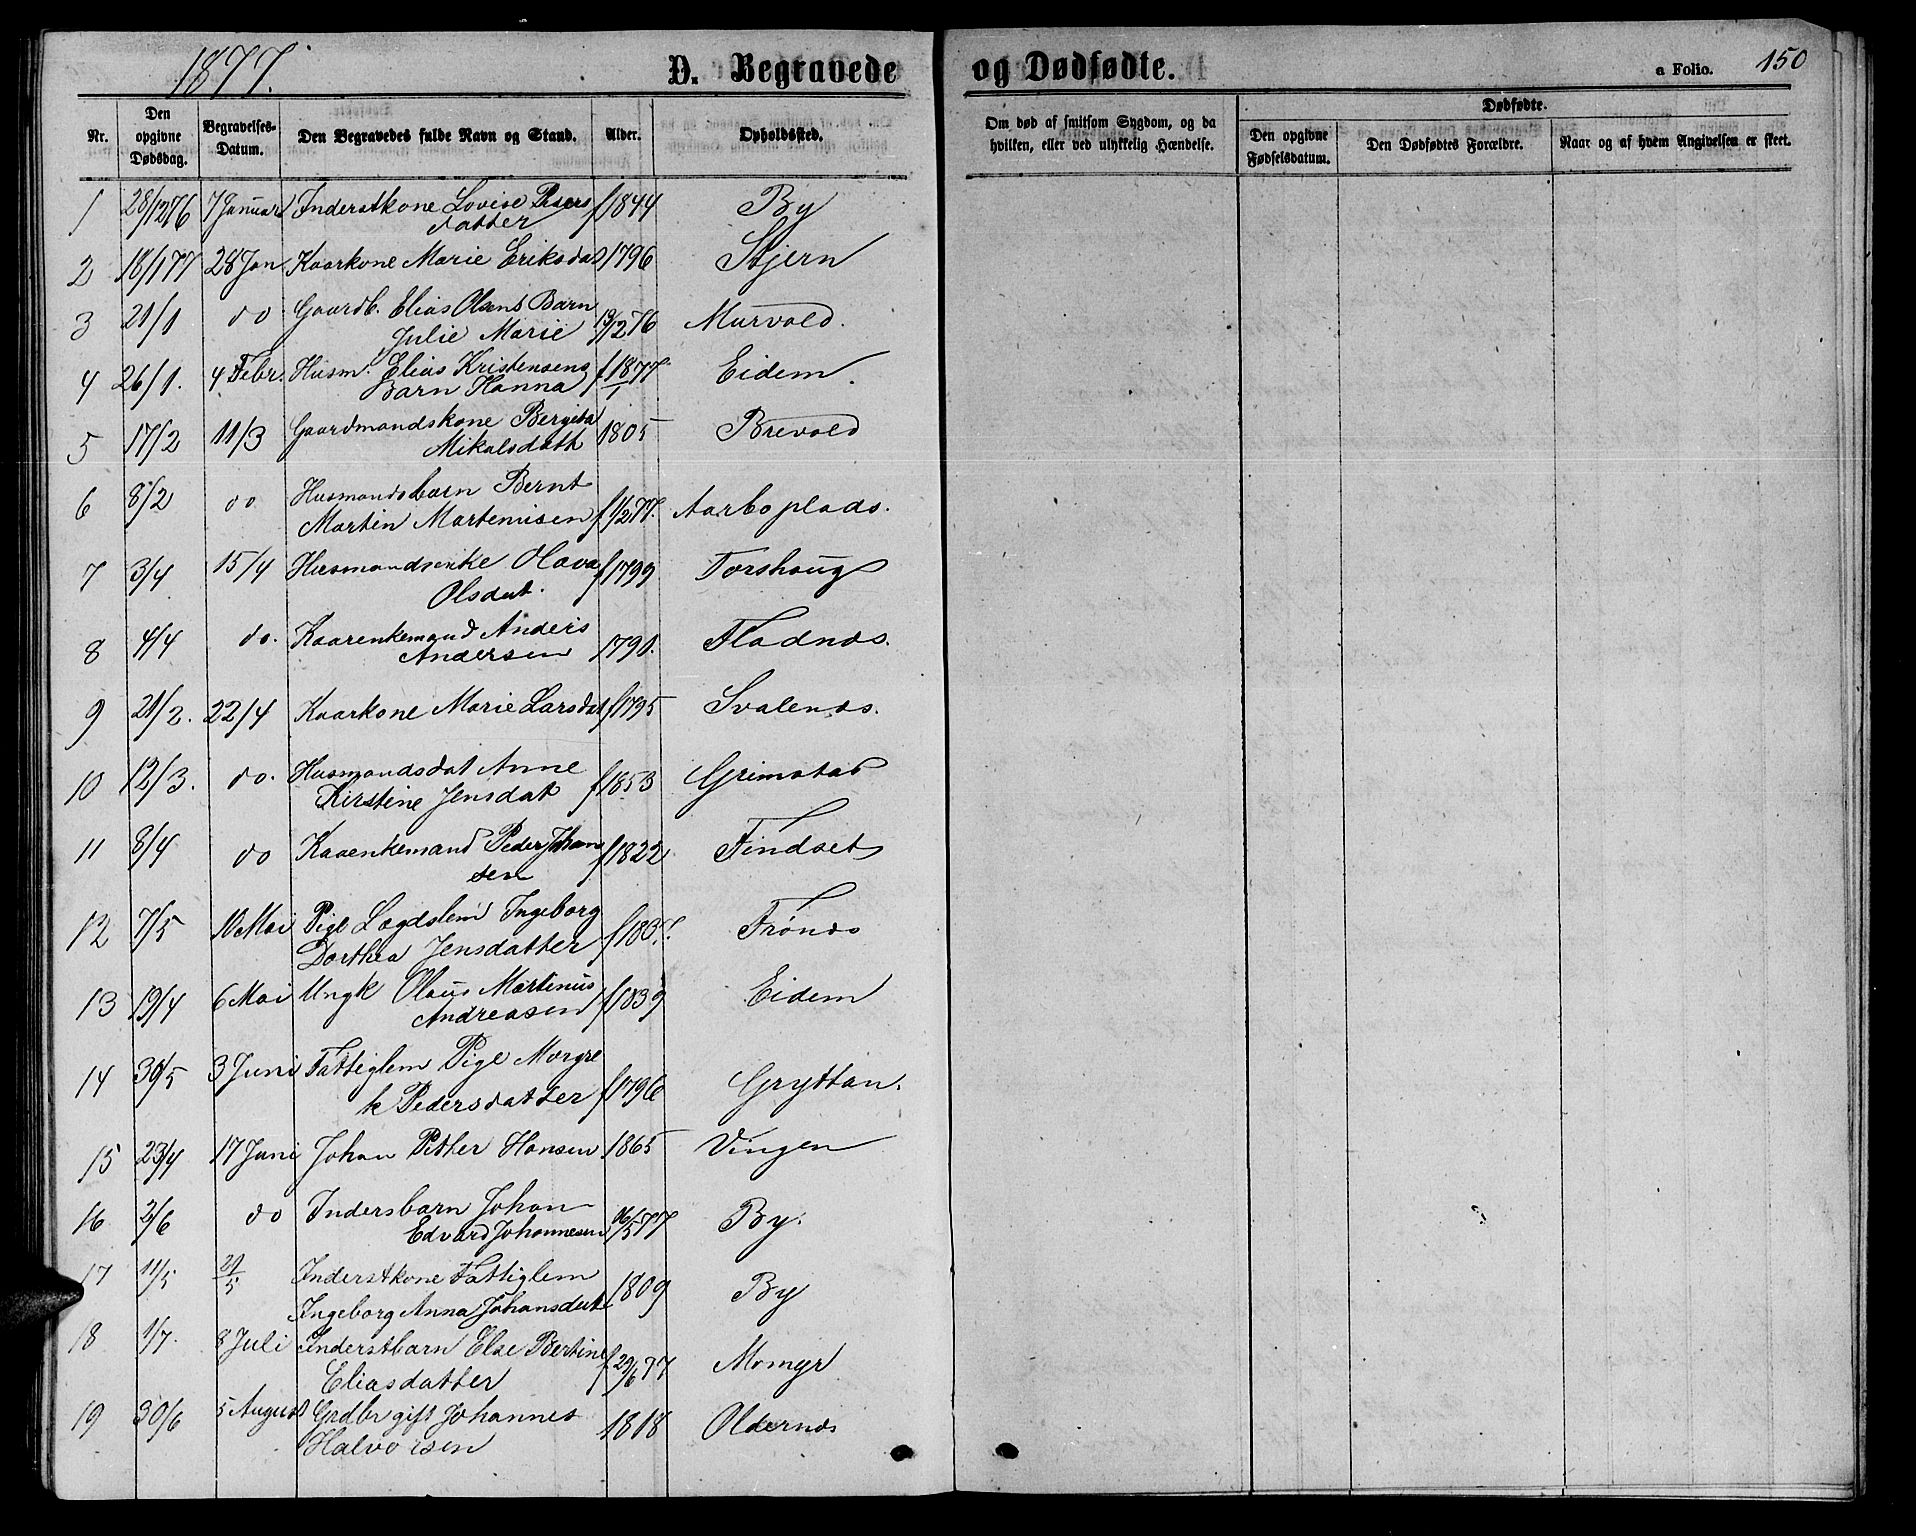 1877.
D. Begravede og Dødfødte.
a Folio. 150
Nr. | Den opgivne Dødsdag. | Begravelses-Datum. | Den Begravedes fulde Navn og Stand. | Alder. | Opholdssted. | Om død af smitsom Sygdom, og da hvilken, eller ved ulykkelig Hændelse. | Dødfødte. | Den opgivne Fødselsdatum. | Den Dødfødtes Forældre. | Naar og af hvem Angivelsen er skeet.
1 28/12 76 7 Januar Inderstkone Lovise Peders f 1844 By
datter
2 18/1 77 28 Jan Kaarkone Marie Eriksdat 1796 Stjern
3 21/1 do Gaardb. Elias Olsens Barn
Julie Marie 19/12 76 Murvold.
4 26/1. 4 Febr. Husm. Elias Kristensens f 1877 Eidem.
Barn Hanna 1
5 17/2 11/3 Gaardmandskone Bergitha 1805 Brevold
Mikalsdatt
6 8/2 do Husmandsbarn Bernt
Martin Martenisen f 1/2 77. Aarboplads.
7 3/4 15/4 Husmandsenke Olava f 1799 Torshoug
Olsdat.
8 4/4 do. Kaarenkemand Anders
Andersen 1790. Fladnæs.
9 21/2. 22/4 Kaarkone Marie Larsdat f 1795 Svalenæs.
10 12/3. do. Husmandsdat Anne
Kirstine Jensdat f 1853 Grimstad
11 8/4 do Kaarenkemand Peder Johan f 1822 Findset
sen
12 7/5 10 Mai Pige Lægdslem Ingeborg
Dorthea Jensdatter Trønæs
13 19/4 6 Mai Ungk Olaus Martinus
Andreasen f 1839 Eidem
14 30/5 3 Juni Fattiglem Pige Margre
te Pedersdatter f 1796 Gryttan.
15 23/4 17 Juni Johan Pitter Hansen 1865 Vingen
16 2/6 do Indersbarn Johan
Edvard Johannesen 16/5 77 By.
17 11/5 21/5 Inderstkone Fattiglem
Ingeborg Anna Johansdatt 1809 By
18 1/7. 8 Juli Inderstbarn Else Bertine
Eliasdatter f 29/6 77 Momyr
19 30/6 5 August Grdbr gift Johannes
Halvorsen 1818 Oldernæs